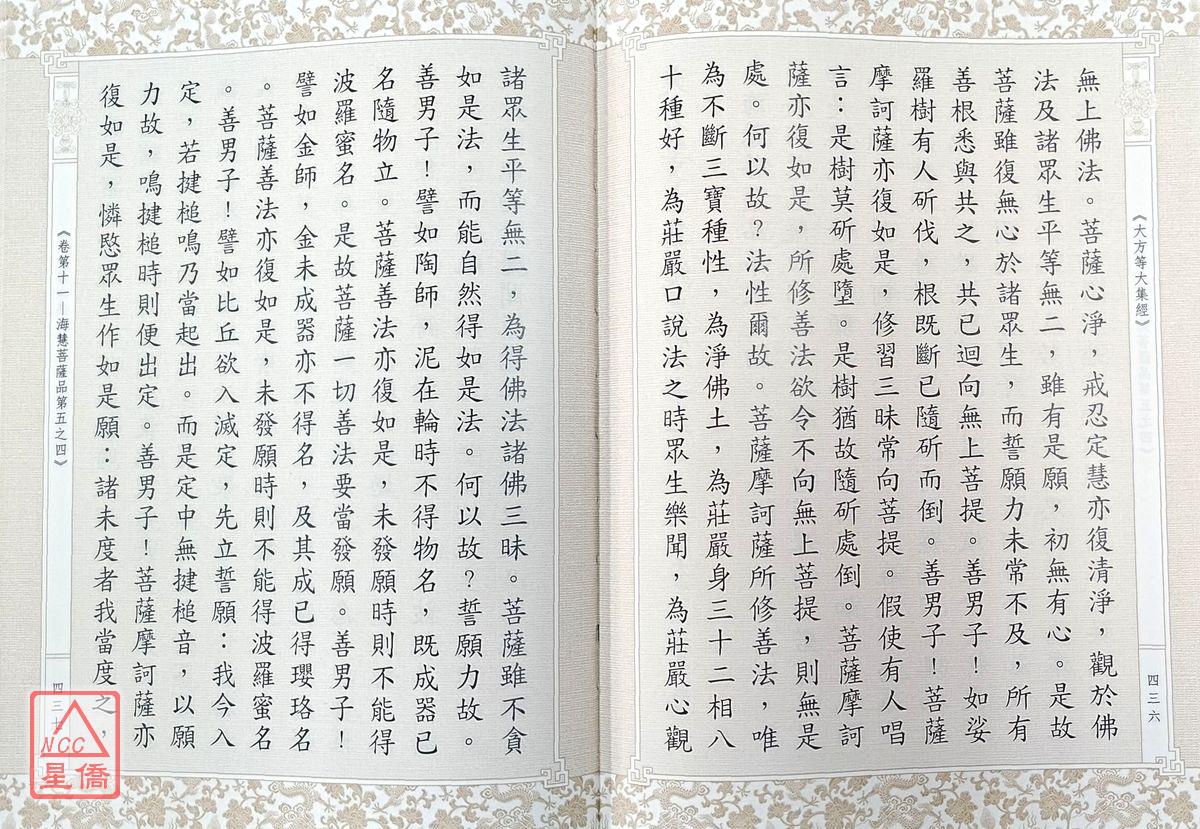 《大方等大集經》
四三六
無上佛法。菩薩心淨，戒忍定慧亦復清淨，觀於佛
法及諸眾生平等無二，雖有是願，初無有心。是故
菩薩雖復無心於諸眾生，而誓願力未常不及，所有
善根悉與共之，共已迴向無上菩提。善男子！如娑
羅樹有人斫伐，根既斷已隨斫而倒。善男子！菩薩
摩訶薩亦復如是，修習三昧常向菩提。假使有人唱
言：是樹莫斫處墮。是樹猶故隨斫處倒。菩薩摩訶
薩亦復如是，所修善法欲令不向無上菩提，則無是
處。何以故？法性爾故。菩薩摩訶薩所修善法，唯
為不斷三寶種性，為淨佛土，為莊嚴身三十二相八
十種好，為莊嚴口說法之時眾生樂聞，為莊嚴心觀
諸眾生平等無二，為得佛法諸佛三昧。菩薩雖不貪
如是法，而能自然得如是法。何以故？誓願力故。
善男子！譬如陶師，泥在輪時不得物名，既成器已
名隨物立。菩薩善法亦復如是，未發願時則不能得
波羅蜜名。是故菩薩一切善法要當發願。善男子！
譬如金師，金未成器亦不得名，及其成已得瓔珞名
。菩薩善法亦復如是，未發願時則不能得波羅蜜名
。善男子！譬如比丘欲入滅定，先立誓願：我今入
定，若揵槌鳴乃當起出。而是定中無揵槌音，以願
力故，鳴揵槌時則便出定。善男子！菩薩摩訶薩亦
復如是，憐愍眾生作如是願：諸未度者我當度之，
《卷第十一—海慧菩薩品第五之四》
四三七
NCC
星僑